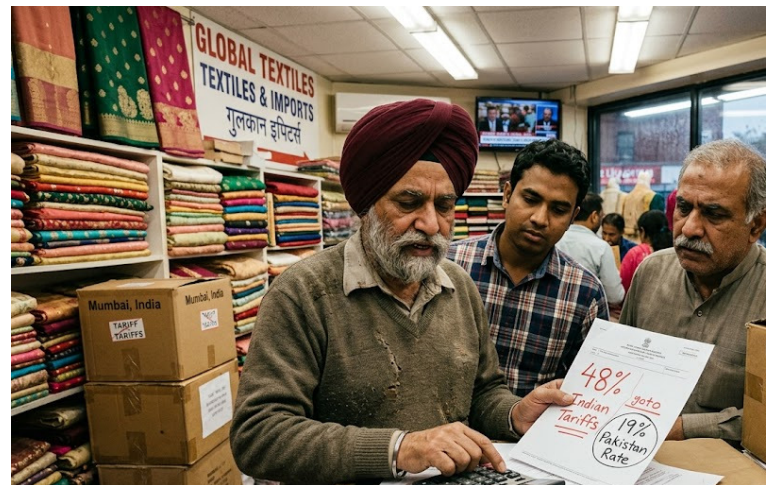 GLOBAL TEXTILES
TEXTILES & IMPORTS
गुलकान इपिटर्स
Mumbai, India
Mumbai, India
TARIFF
TARIFFS
48%
Indian
Tariffs
goto
19%
Pakistan
Rate